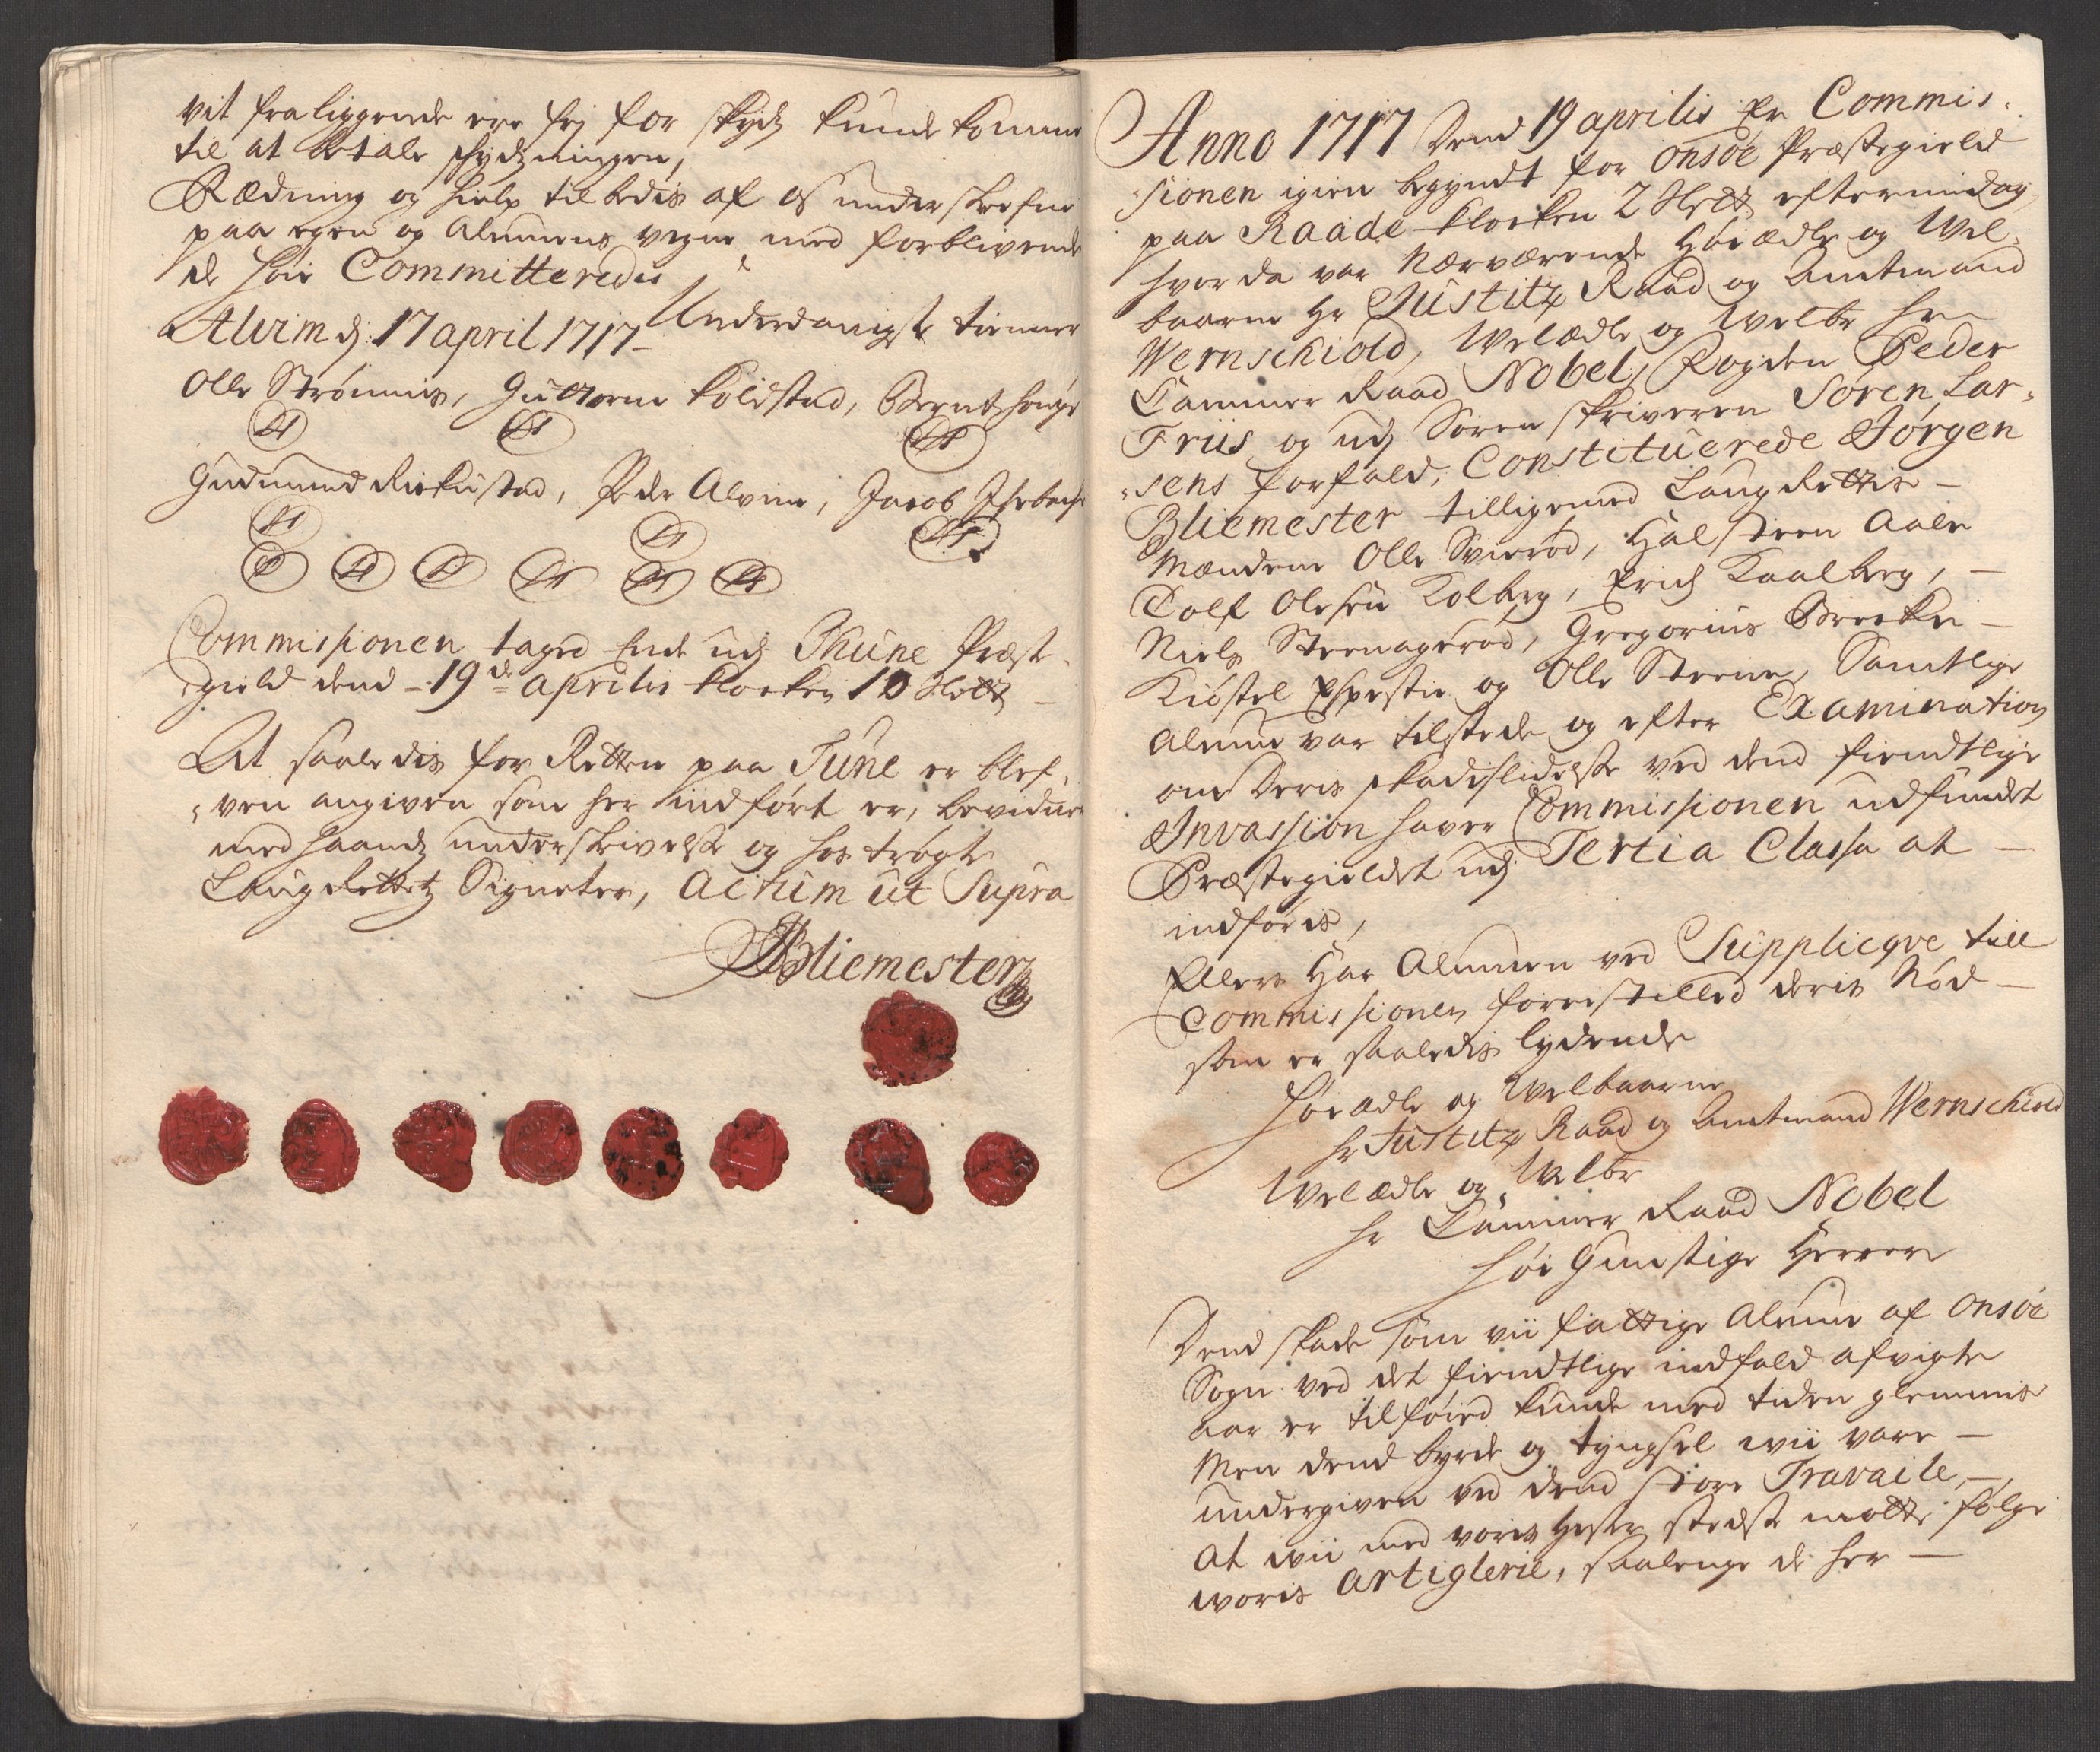 vit fraliggende ere frj for skydz kunde komme
til at betale skydzningen,
Rædning og hielp tilbedis af os underskrefne
paa egen og Almuens vegne med forblivende
de høie Committeredis
Underdanigste tienner
Alvim dj: 17 april 1717
Olle Strømnis, Guttorm Kolstad, Bernt Hauge
Gudmund Rirkustad, Peder Alvim, Jacob
Commissionen tager Ende udj Thune Præste
gield dend 19de aprilis klocken 10 slett
At saaledis for Retten paa Tune er blef,
ven angiven som her indført er, bevidner
med haands underskrivelse og hos trøgte
LaugRettetz Signeter, Actum ut Supra
Bliemester
Anno 1717 Dend 19 aprilis Er Commis,
sionen igien begyndt for onsøe Præstegield
paa Raade klocken 2 slett eftermidag
hvor da var Nærværende Høiædle og Wel,
baarne Hr Justitz Raad og Amtmand
Wernschiold, Welædle og Welbr Hr
Cammer Raad Nobel, Fogden Peder
Friis og udj Sørenskriveren Søren Lar,
sens forfald, Constituerede Jørgen
Bliemester tilligemed LaugRettis
Mændene Olle Svierød, Halsteen Aale
Tolf Olesen Kolberg, Erich Kaalberg,
Niels Steenagerød, Gregorius Brecke
Kiøstel Espestie og Olle Steene, Samtlige
Almue var tilstede og efter Examination
om Deris skadislidelse ved dend fiendtlige
Invassion haver Commissionen udfundet
Præstegieldet udj Tertia Classa at
indføris,
Ellers Har Almuen ved Supplicqve till
Commissionen forestilled deris Nød
som er saaledis lydende
Høiædle og Welbaarne
Hr Justitz Raad og Amtmand Wernschiold
Welædle og Welbr
Hr Cammer Raad Nobel
Høi Gunstige Herrer
Dend skade som vii fattige Almue af onsøe
Sogn ved det fiendtlige indfald afvigte
aar er tilføied kunde med tiden glemmis
Men dend byrde og tyngsel wii vare
undergiven ved dend store Travaile,
At wii med voris Hester stedse motte følge
woris Artiglerie, saalenge de her